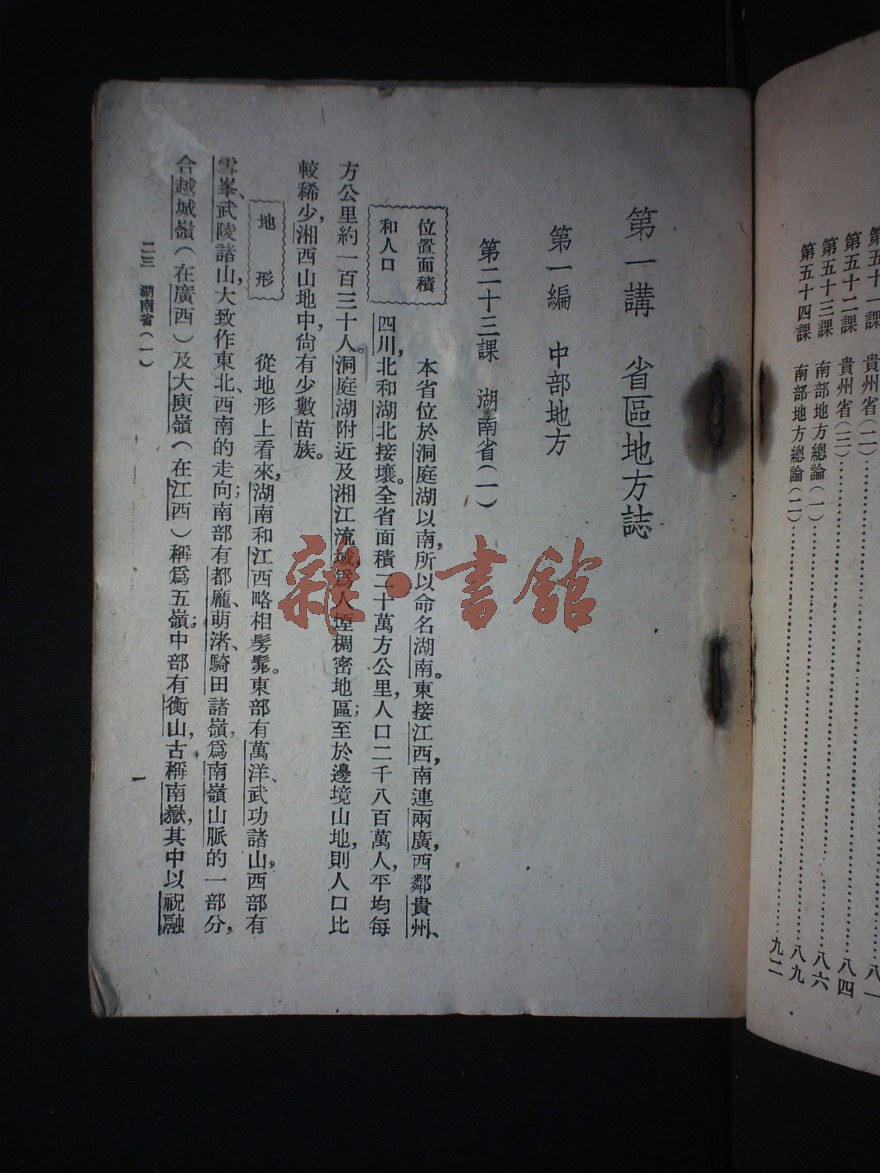 第五十一課 貴州省(一)……八一
第五十二課 貴州省(二)……八四
第五十三課 南部地方總論(一)……八六
第五十四課 南部地方總論(二)……八九
九二
第一講 省區地方誌
第一編 中部地方
第二十三課 湖南省(一)
位置面積
和人口
本省位於洞庭湖以南,所以命名湖南。東接江西,南連兩廣,西鄰貴州、
四川,北和湖北接壤。全省面積二十萬方公里,人口二千八百萬人,平均每
方公里約一百三十人。洞庭湖附近及湘江流域,爲人煙稠密地區;至於邊境山地,則人口比
較稀少,湘西山地中,尙有少數苗族。
地形
從地形上看來,湖南和江西略相髣髴。東部有萬洋、武功諸山,西部有
雪峯、武陵諸山,大致作東北、西南的走向;南部有都龐、萌渚、騎田諸嶺,爲南嶺山脈的一部分,
合越城嶺(在廣西)及大庾嶺(在江西)稱爲五嶺;中部有衡山,古稱南嶽,其中以祝融
二三 湖南省(一)
一
雜·書館